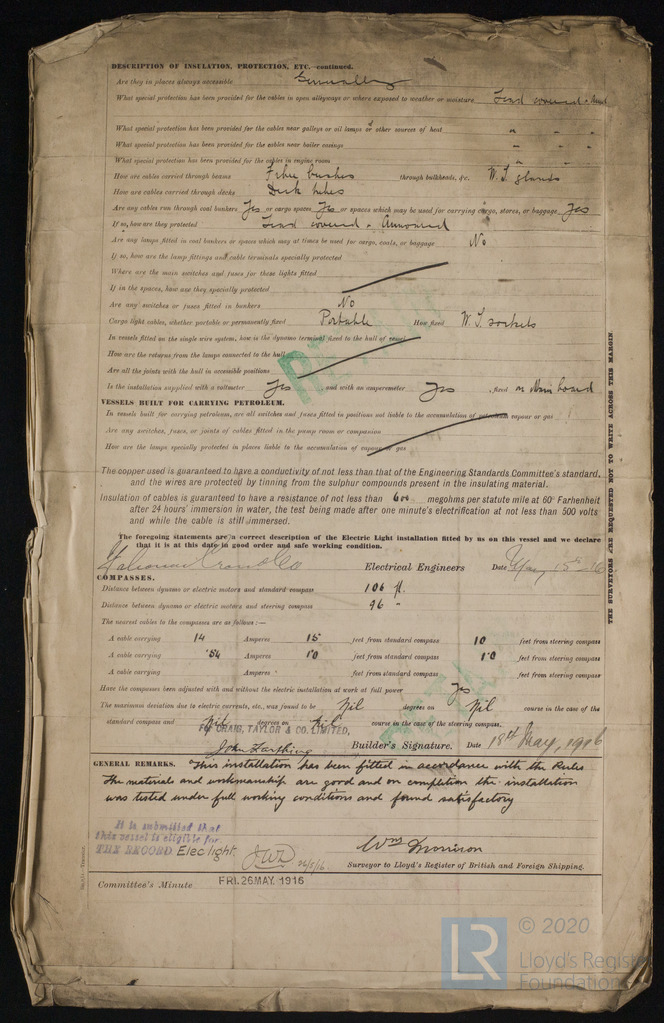 DESCRIPTION OF INSULATION, PROTECTION, ETC. continued.
Are they in places always accessible Generally
What special protection has been provided for the cables in open alleyways or where exposed to weather or moisture Lead covered &
What special protection has been provided for the cables near galleys or oil lamps or other sources of heat " " "
What special protection has been provided for the cables near boiler casings " " "
What special protection has been provided for the cables in engine room " " "
How are cables carried through beams Fibre bushes through bulkheads, &c. W.T. glands
How are cables carried through decks Deck tubes
Are any cables run through coal bunkers Yes or cargo spaces Yes or spaces which may be used for carrying cargo, stores, or baggage Yes
If so, how are they protected Lead covered & Armoured
Are any lamps fitted in coal bunkers or spaces which may at times be used for cargo, coals, or baggage No
If so, how are the lamp fittings and cable terminals specially protected
Where are the main switches and fuses for these lights fitted
If in the spaces, how are they specially protected
Are any switches or fuses fitted in bunkers No
Cargo light cables, whether portable or permanently fixed Portable How fixed W.T. sockets
In vessels fitted on the single wire system, how is the dynamo terminal fixed to the hull of vessel
How are the returns from the lamps connected to the hull
Are all the joints with the hull in accessible positions
Is the installation supplied with a voltmeter Yes and with an amperemeter Yes , fixed on Main board
VESSELS BUILT FOR CARRYING PETROLEUM.
In vessels built for carrying petroleum, are all switches and fuses fitted in positions not liable to the accumulation of petroleum vapour or gas
Are any switches, fuses, or joints of cables fitted in the pump room or companion
How are the lamps specially protected in places liable to the accumulation of vapour or gas
The copper used is guaranteed to have a conductivity of not less than that of the Engineering Standards Committee's standard,
and the wires are protected by tinning from the sulphur compounds present in the insulating material.
Insulation of cables is guaranteed to have a resistance of not less than 600 megohms per statute mile at 60° Farhenheit
after 24 hours' immersion in water, the test being made after one minute's electrification at not less than 500 volts
and while the cable is still immersed.
The foregoing statements are a correct description of the Electric Light installation fitted by us on this vessel and we declare
that it is at this date in good order and safe working condition.
Electrical Engineers Date May 15th 16
COMPASSES.
Distance between dynamo or electric motors and standard compass 106 ft.
Distance between dynamo or electric motors and steering compass 96 "
The nearest cables to the compasses are as follows:—
A cable carrying 14 Amperes 15 feet from standard compass 10 feet from steering compass
A cable carrying .54 Amperes 10 feet from standard compass 10 feet from steering compass
A cable carrying Amperes feet from standard compass feet from steering compass
Have the compasses been adjusted with and without the electric installation at work at full power Yes
The maximum deviation due to electric currents, etc., was found to be Nil degrees on Nil course in the case of the
standard compass and Nil degrees on Nil course in the case of the steering compass.
For CRAIG, TAYLOR & CO. LIMITED,
John Farthing Builder's Signature. Date 18th May, 1916
GENERAL REMARKS. This installation has been fitted in accordance with the Rules
The materials and workmanship are good and on completion the installation
was tested under full working conditions and found satisfactory
It is submitted that
this vessel is eligible for
THE RECORD Elec light. 26/5/16
Wm Morrison
Surveyor to Lloyd's Register of British and Foreign Shipping.
Committee's Minute FRI. 26 MAY. 1916
THE SURVEYORS ARE REQUESTED NOT TO WRITE ACROSS THIS MARGIN.
LR
© 2020
Lloyd's Register
Foundation